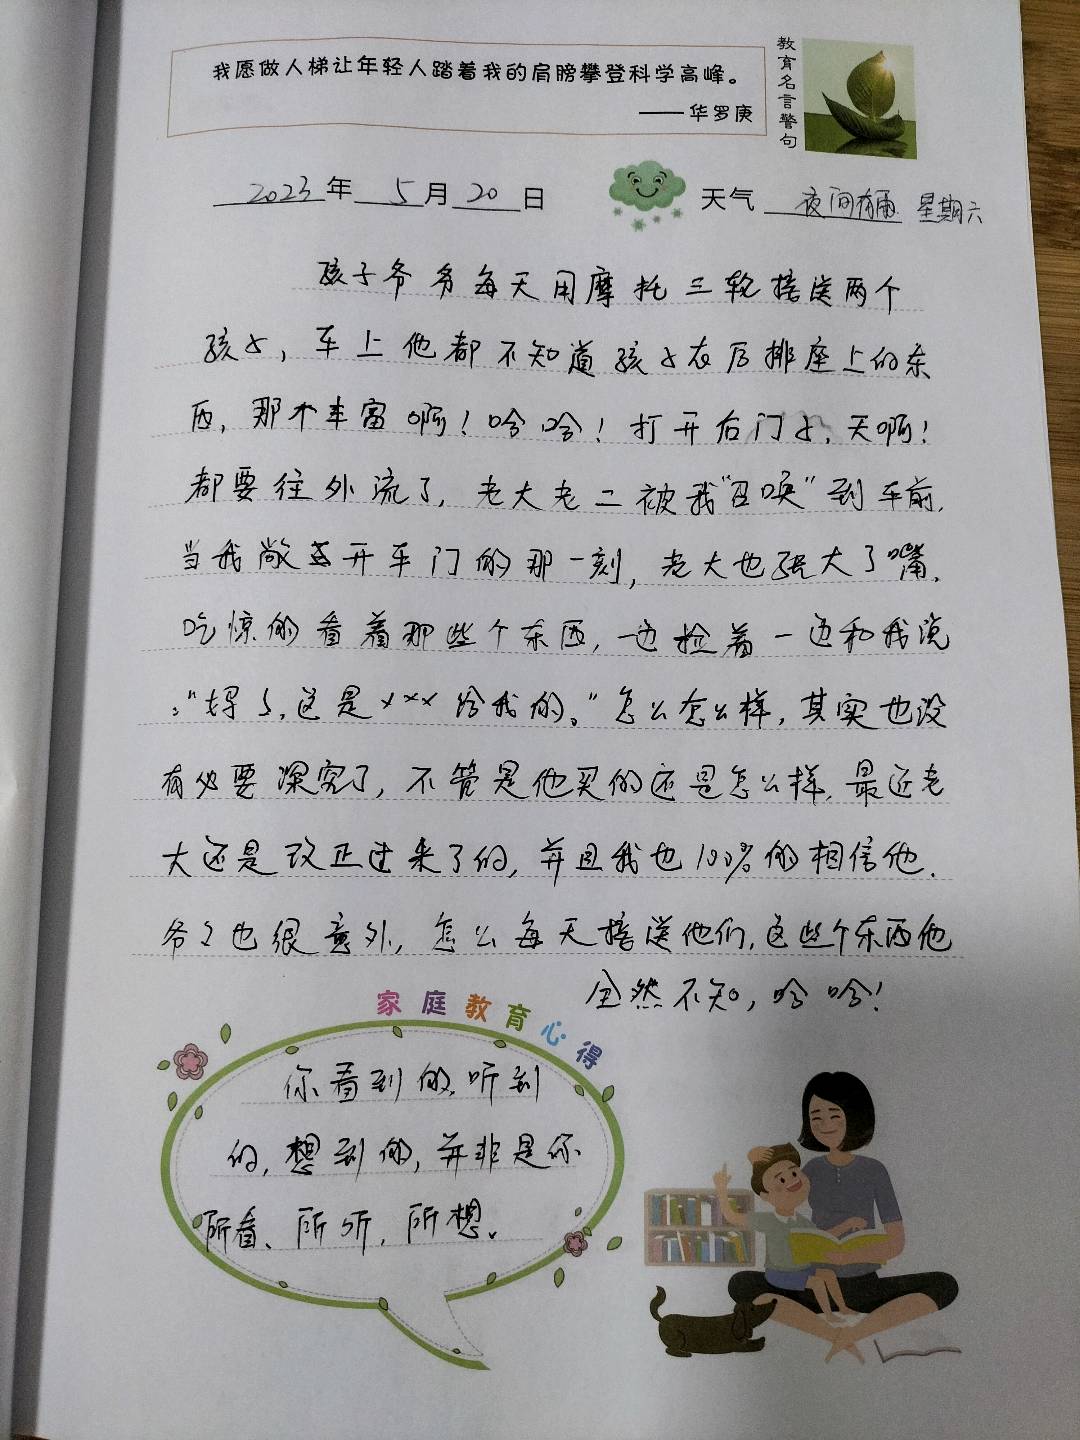 我愿做人梯让年轻人踏着我的肩膀攀登科学高峰。
——华罗庚
教育名言警句
2023年 5月20日 天气 夜间有雨 星期六
孩子爷爷每天用摩托三轮接送两个
孩子,车上他都不知道孩子在后排座上的东
西,那个丰富啊!哈哈!打开后门子,天啊!
都要往外流了,老大老二被我“召唤”到车前,
当我敞开车门的那一刻,老大也张大了嘴,
吃惊的看着那些个东西,一边捡着一边和我说
:“妈妈,这是×××给我的。”怎么怎么样,其实也没
有必要深究了,不管是他买的还是怎么样,最近老
大还是改正过来了的,并且我也100%的相信他.
爷爷也很意外,怎么每天接送他们,这些个东西他
全然不知,哈哈!
家庭教育心得
你看到的,听到
的,想到的,并非是你
所看、所听,所想。